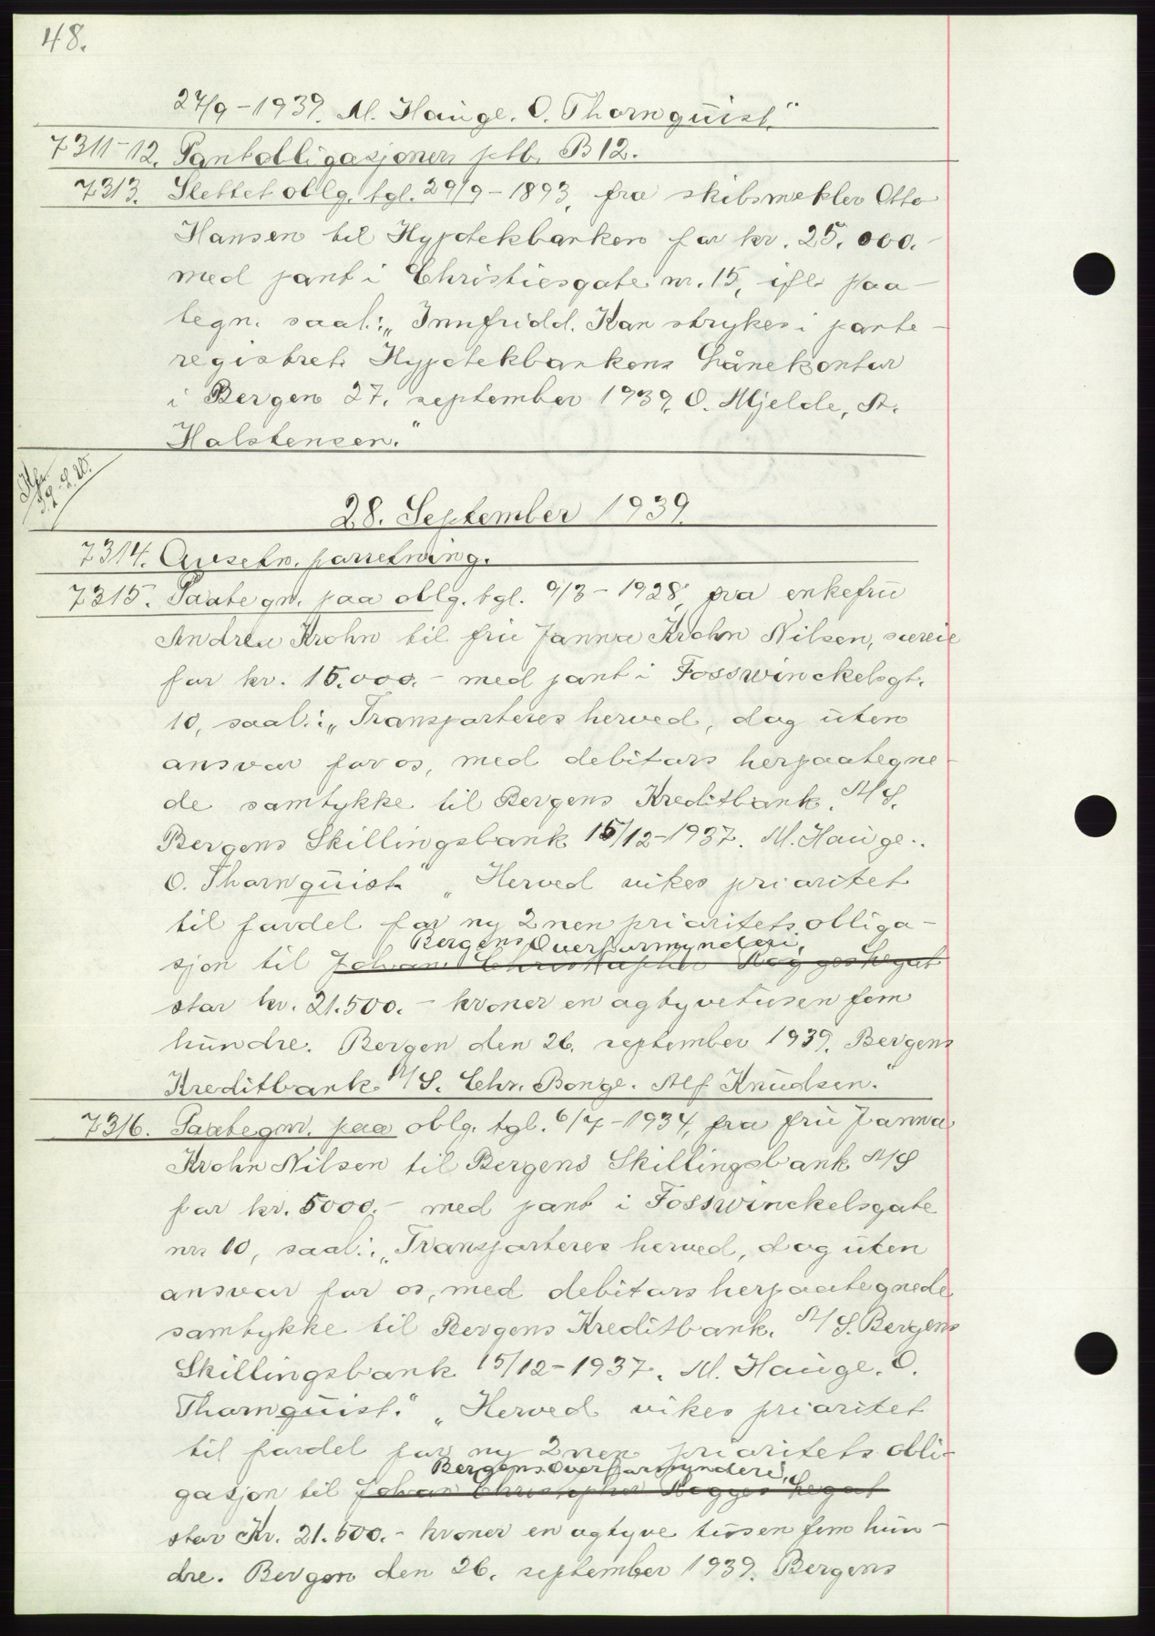 48.
27/9-1939. M. Hauge. O. Thornquist."
7311-12. Pantobligasjoner, ptb. B 12.
7313. Slettet oblg. tgl. 29/9-1893, fra skibsmekler Otto
Hansen til Hypotekbanken for kr. 25.000.-
med pant i Christiesgate nr. 15, ifl. paa-
tegn. saal.: „Innfridd. Kan strykes i pante-
registret. Hypotekbankens Lånekontor
i Bergen 27. september 1939. O. Mjelde, A.
Halstensen."
28. September 1939.
7314. Avsetn. forretning.
7315. Paategn. paa oblg. tgl. 9/3-1928, fra enkefru
Andrea Krohn til fru Janna Krohn Nilsen, særeie
for kr. 15.000.- med pant i Fosswinckelsgt.
10, saal.: „Transporteres herved, dog uten
ansvar for os, med debitors herpaategne-
de samtykke til Bergens Kreditbank. A/S.
Bergens Skillingsbank 15/12-1937. M. Hauge.
O. Thornquist." „Herved vikes prioritet
til fordel for ny 2nen prioritets obliga-
Bergens Overformynderi,
sjon til Johan Christopher Rogges Legat
stor kr. 21.500.- kroner en og tyvetusen fem
hundre. Bergen den 26. september 1939. Bergens
Kreditbank A/S. Chr. Bonge. Alf Knudsen."
7316. Paategn. paa oblg. tgl. 6/7-1934, fra fru Janna
Krohn Nilsen til Bergens Skillingsbank A/S
for kr. 5000.- med pant i Fosswinckelsgate
nr. 10, saal.: „Transporteres herved, dog uten
ansvar for os, med debitors herpaategnede
samtykke til Bergens Kreditbank. A/S. Bergens
Skillingsbank 15/12-1937. M. Hauge. O.
Thornquist." „Herved vikes prioritet
til fordel for ny 2nen prioritets obli-
Bergens Overformynderi,
gasjon til Johan Christopher Rogges Legat
stor Kr. 21.500.- kroner en og tyve tusen fem hun-
dre. Bergen den 26. september 1939. Bergens